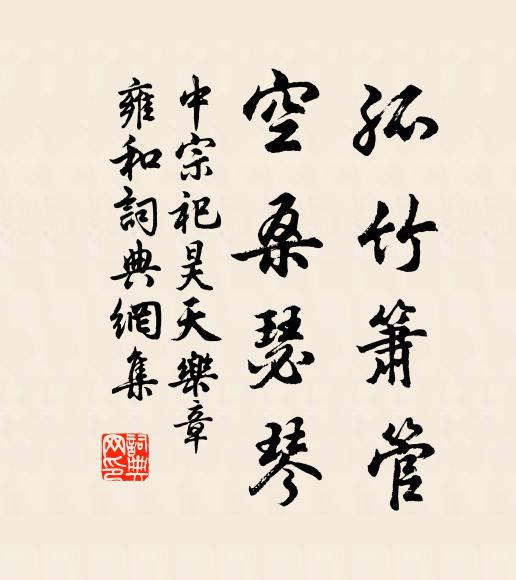 孤竹簫管
空桑瑟琴
中宗祀昊天樂章
雍和詞典網集
詞典网印